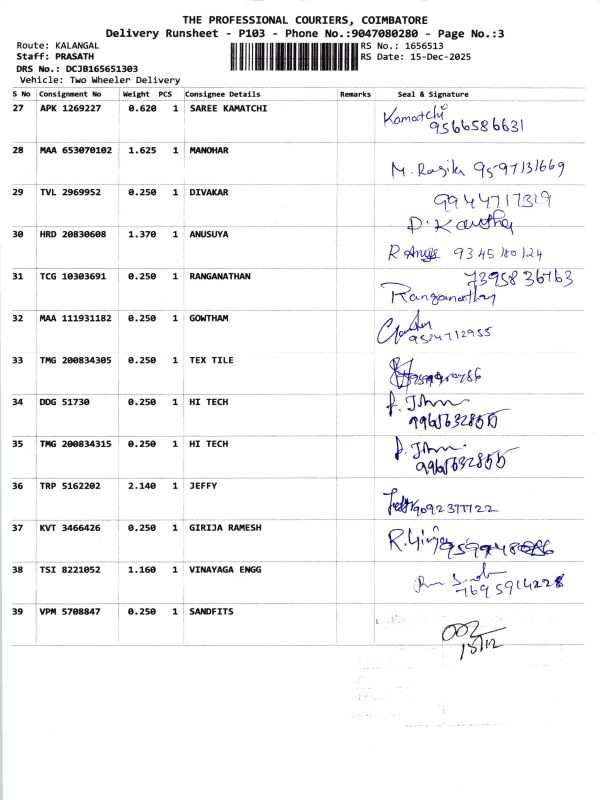 THE PROFESSIONAL COURIERS, COIMBATORE
Delivery Runsheet - P103 - Phone No.:9047080280 - Page No.:3
Route: KALANGAL
RS No.: 1656513
Staff: PRASATH
RS Date: 15-Dec-2025
DRS No.: DCJB165651303
Vehicle: Two Wheeler Delivery
S No Consignment No Weight PCS Consignee Details Remarks Seal & Signature
27 APK 1269227 0.620 1 SAREE KAMATCHI Kamatchi
9566586631
28 MAA 653070102 1.625 1 MANOHAR
M. Rasika 9597131669
29 TVL 2969952 0.250 1 DIVAKAR 9944717319
30 HRD 20830608 1.370 1 ANUSUYA
9345180124
31 TCG 10303691 0.250 1 RANGANATHAN 7395836763
Ranganathan
32 MAA 111931182 0.250 1 GOWTHAM
9524712955
33 TMG 200834305 0.250 1 TEX TILE
34 DDG 51730 0.250 1 HI TECH
9965632855
35 TMG 200834315 0.250 1 HI TECH
9965632855
36 TRP 5162202 2.140 1 JEFFY
9092377722
37 KVT 3466426 0.250 1 GIRIJA RAMESH
R. Girija
38 TSI 8221052 1.160 1 VINAYAGA ENGG
7695914228
39 VPM 5708847 0.250 1 SANDFITS
15/12